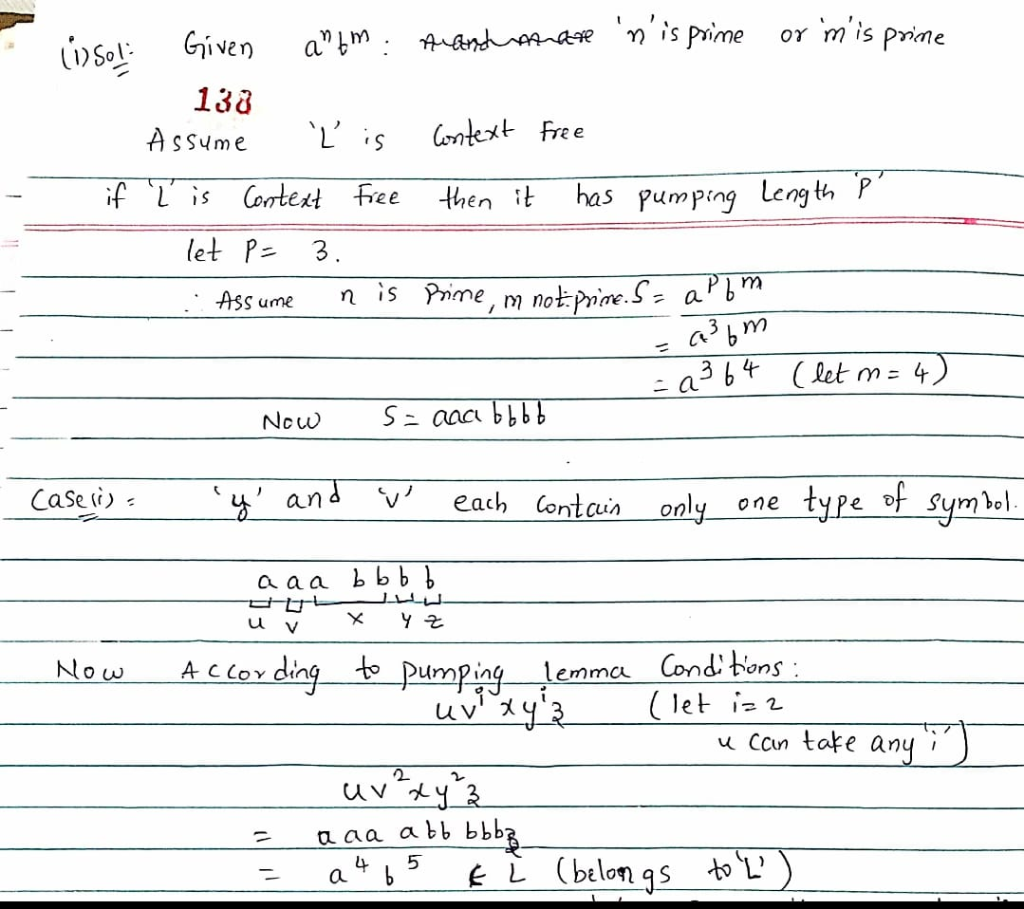 (i) Sol:- Given aⁿbᵐ : n and m are 'n' is prime or 'm' is prime
138
Assume 'L' is Context Free
if 'L' is Context free then it has pumping Length 'P'
let P = 3.
∴ Assume n is Prime, m not prime. S = aᴾbᵐ
= a³bᵐ
= a³b⁴ (let m = 4)
Now S = aaabbbb
Case(i) = 'y' and 'v' each contain only one type of symbol.
a a a b b b b
u v x y z
Now According to pumping lemma Conditions:
uvⁱxyⁱz (let i = 2
u can take any 'i')
uv²xy²z
= aaa abb bbbz
= a⁴b⁵ ∈ L (belongs to 'L')